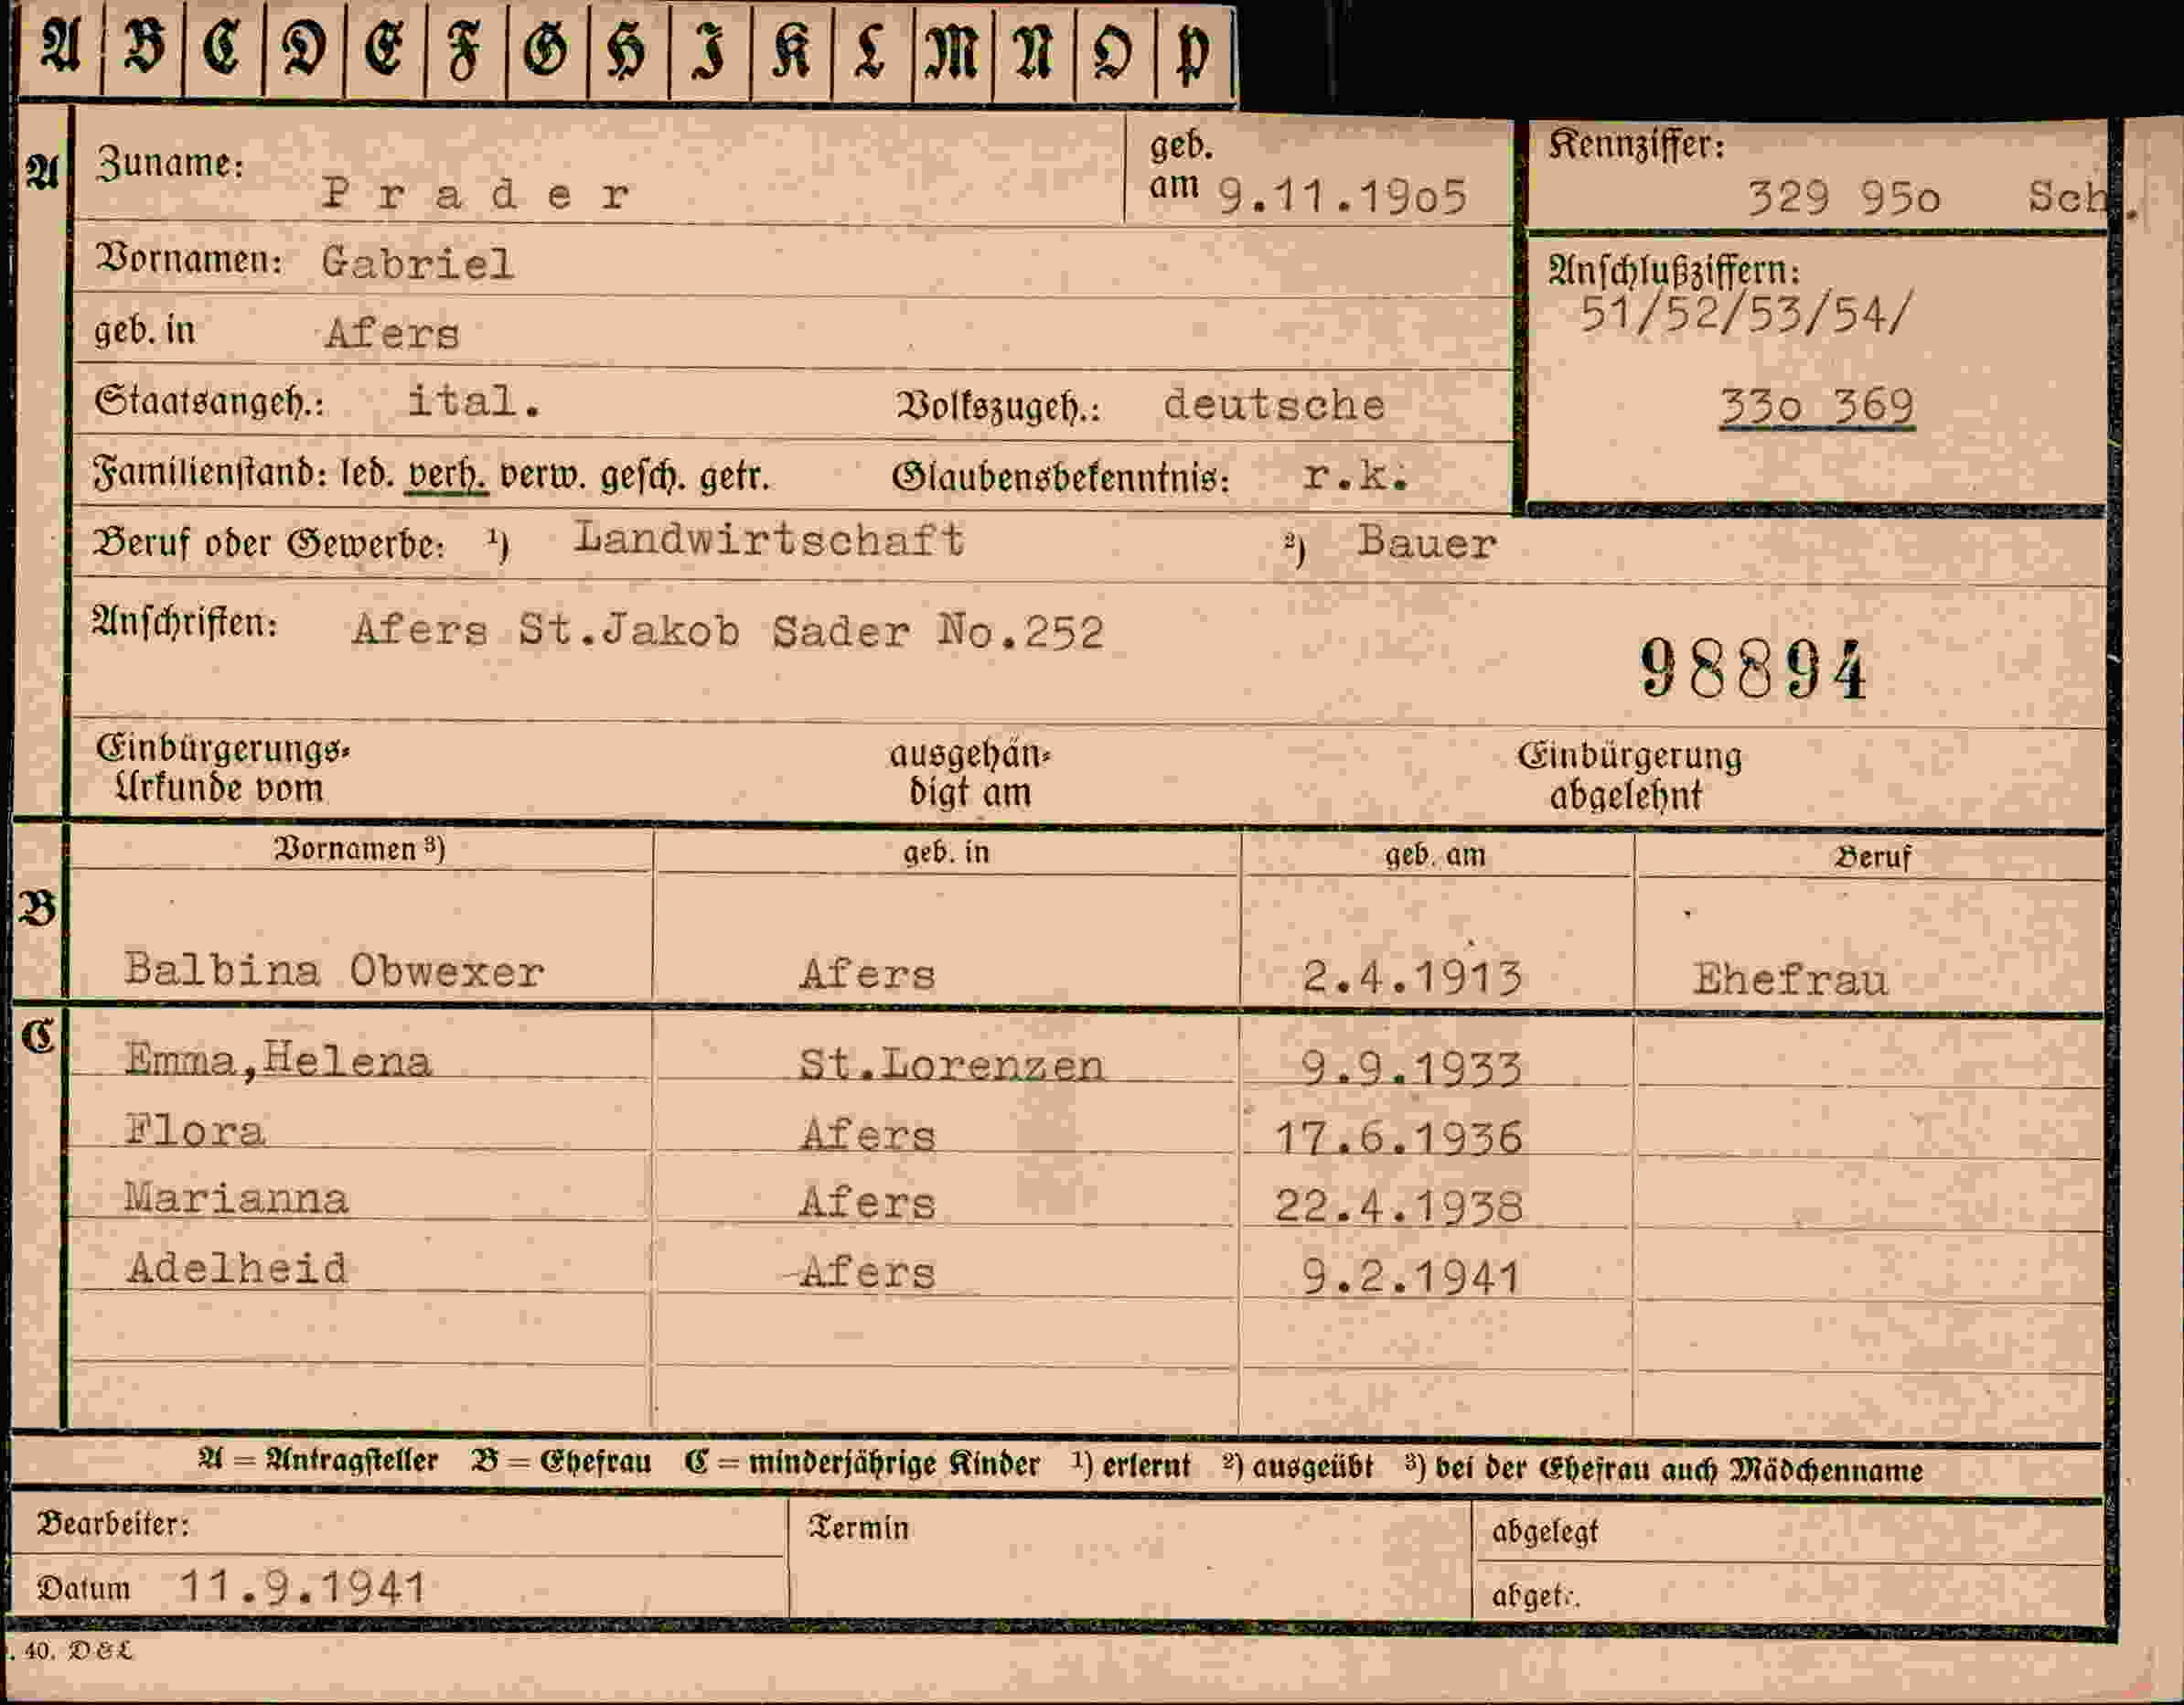 A B C D E F G H I K L M N O P
A Zuname: Prader geb. am 9.11.1905 Kennziffer: 329 950 Sch.
Vornamen: Gabriel Anschlußziffern:
51/52/53/54/
geb. in Afers
Staatsangeh.: ital. Volkszugeh.: deutsche 330 369
Familienstand: led. verh. verw. gesch. getr. Glaubensbekenntnis: r.k.
Beruf oder Gewerbe: ¹) Landwirtschaft ²) Bauer
Anschriften: Afers St.Jakob Sader No.252
98894
Einbürgerungs- ausgehän- Einbürgerung
Urkunde vom digt am abgelehnt
Vornamen ³) geb. in geb. am Beruf
B
Balbina Obwexer Afers 2.4.1913 Ehefrau
C
Emma,Helena St.Lorenzen 9.9.1933
Flora Afers 17.6.1936
Marianna Afers 22.4.1938
Adelheid Afers 9.2.1941
A = Antragsteller B = Ehefrau C = minderjährige Kinder ¹) erlernt ²) ausgeübt ³) bei der Ehefrau auch Mädchenname
Bearbeiter: Termin abgelegt
Datum 11.9.1941
. 40. D&L